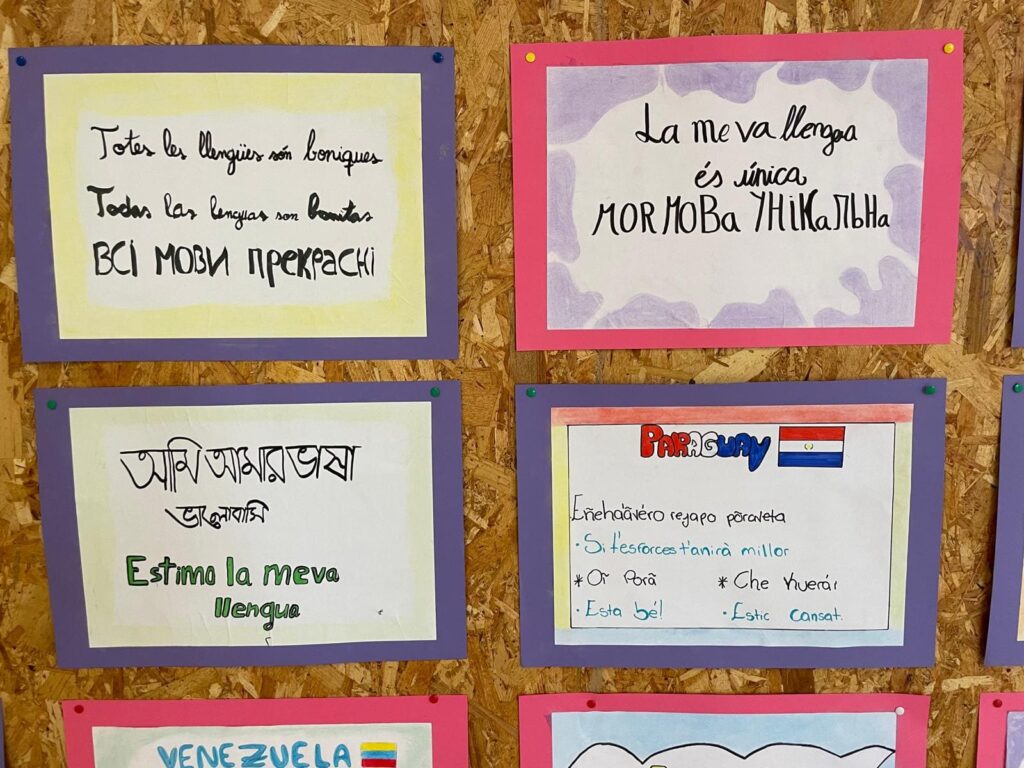 Totes les llengües són boniques
Todas las lenguas son bonitas
ВСІ МОВИ ПРЕКРАСНІ
La meva llengua
és única
МОЯ МОВА УНІКАЛЬНА
আমি আমার ভাষা
ভালোবাসি
Estimo la meva
llengua
PARAGUAY
Eñeha'ãvéro rejapo põraveta
· Si t'esforces t'anirà millor
* Oĩ Porã
* Che kuerái
· Esta bé!
· Estic cansat.
VENEZUELA